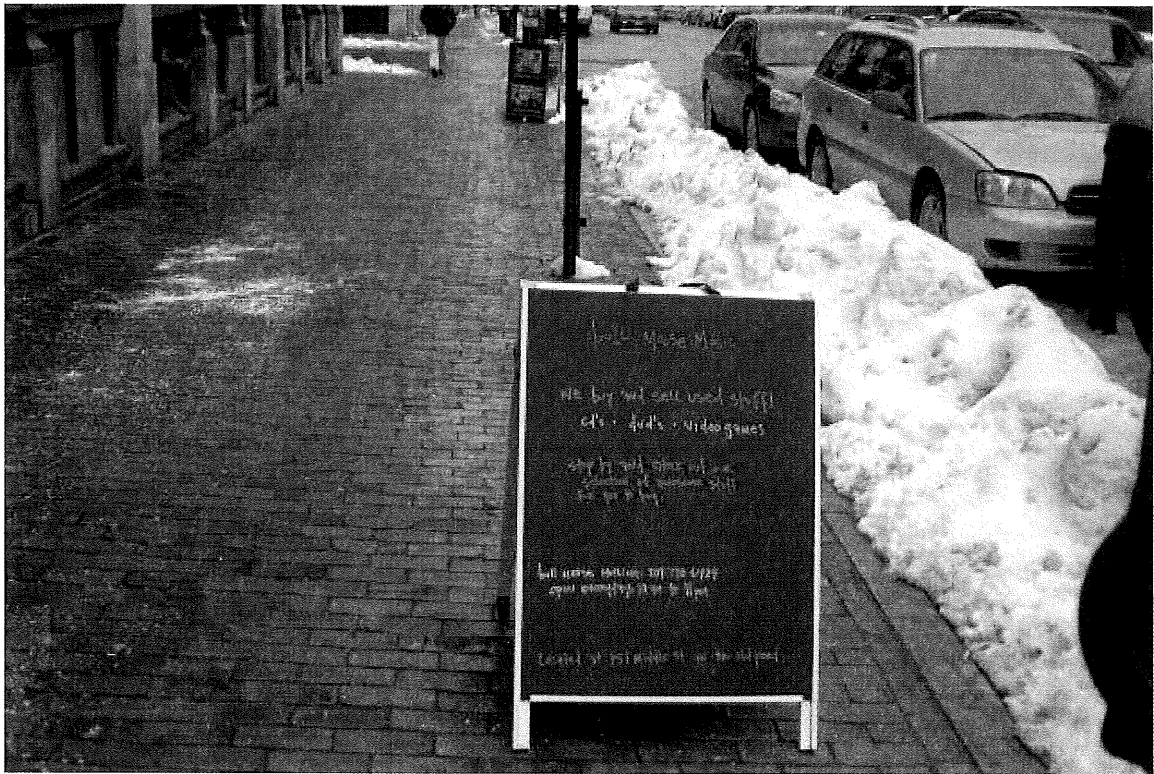 bull Moose Music
we buy and sell used stuff!
cd's • dvd's • video games
stop by and
selection of awesome stuff
for you to buy.
bull moose
open everyday 11pm
Located at 151 Middle St. in the Old port